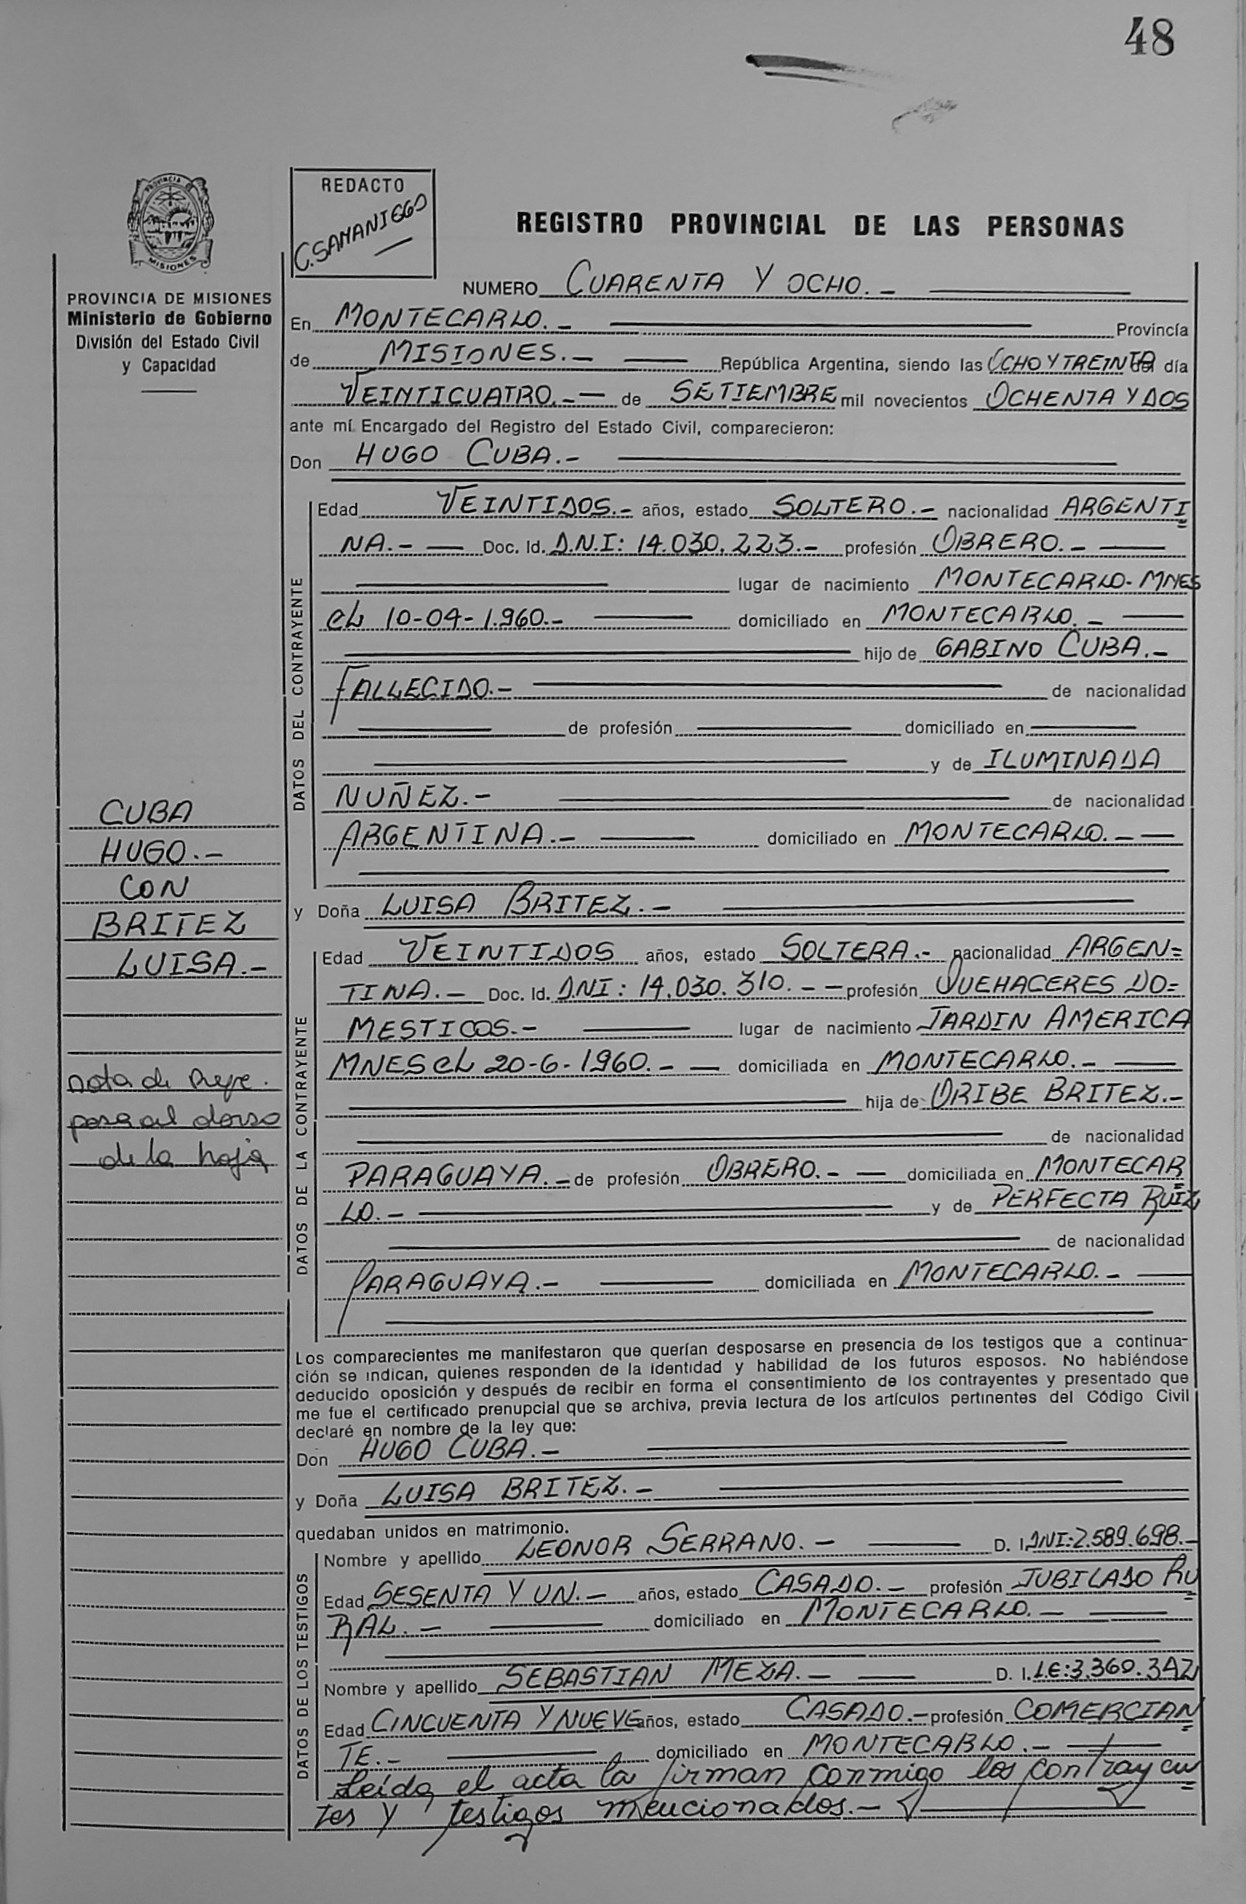 48
PROVINCIA DE
MISIONES
PROVINCIA DE MISIONES
Ministerio de Gobierno
División del Estado Civil
y Capacidad
CUBA
HUGO.-
CON
BRITEZ
LUISA.-
nota de
pasa al dorso
de la hoja
REDACTO
C. SAMANIEGO
REGISTRO PROVINCIAL DE LAS PERSONAS
NUMERO CUARENTA Y OCHO.-
En MONTECARLO.- Provincia
de MISIONES.- República Argentina, siendo las OCHO Y TREINTA día
VEINTICUATRO.-- de SETIEMBRE mil novecientos OCHENTA Y DOS
ante mí Encargado del Registro del Estado Civil, comparecieron:
Don HUGO CUBA.-
DATOS DEL CONTRAYENTE
Edad VEINTIDOS.- años, estado SOLTERO.- nacionalidad ARGENTI
NA.- Doc. Id. D.N.I: 14.030.223.- profesión OBRERO.-
lugar de nacimiento MONTECARLO-MNES
el 10-04-1.960.- domiciliado en MONTECARLO.-
hijo de GABINO CUBA.-
FALLECIDO.- de nacionalidad
de profesión domiciliado en
y de ILUMINADA
NUÑEZ.- de nacionalidad
ARGENTINA.- domiciliado en MONTECARLO.-
y Doña LUISA BRITEZ.-
DATOS DE LA CONTRAYENTE
Edad VEINTIDOS años, estado SOLTERA.- nacionalidad ARGEN=
TINA.- Doc. Id. DNI: 14.030.310.-- profesión QUEHACERES DO=
MESTICOS.- lugar de nacimiento JARDIN AMERICA
MNES el 20-6-1960.- domiciliada en MONTECARLO.-
hija de ORIBE BRITEZ.-
de nacionalidad
PARAGUAYA.- de profesión OBRERO.- domiciliada en MONTECAR
LO.- y de PERFECTA RUIZ
de nacionalidad
PARAGUAYA.- domiciliada en MONTECARLO.-
Los comparecientes me manifestaron que querían desposarse en presencia de los testigos que a continua-
ción se indican, quienes responden de la identidad y habilidad de los futuros esposos. No habiéndose
deducido oposición y después de recibir en forma el consentimiento de los contrayentes y presentado que
me fue el certificado prenupcial que se archiva, previa lectura de los artículos pertinentes del Código Civil
declaré en nombre de la ley que:
Don HUGO CUBA.-
y Doña LUISA BRITEZ.-
quedaban unidos en matrimonio.
DATOS DE LOS TESTIGOS
Nombre y apellido LEONOR SERRANO.- D. I. DNI:2.589.698.-
Edad SESENTA Y UN.- años, estado CASADO.- profesión JUBILADO RU
RAL.- domiciliado en MONTECARLO.-
Nombre y apellido SEBASTIAN MEZA.- D. I. LE:3.360.342
Edad CINCUENTA Y NUEVE años, estado CASADO.- profesión COMERCIAN
TE.- domiciliado en MONTECARLO.-
Leída el acta la firman conmigo los contrayen
tes y testigos mencionados.-